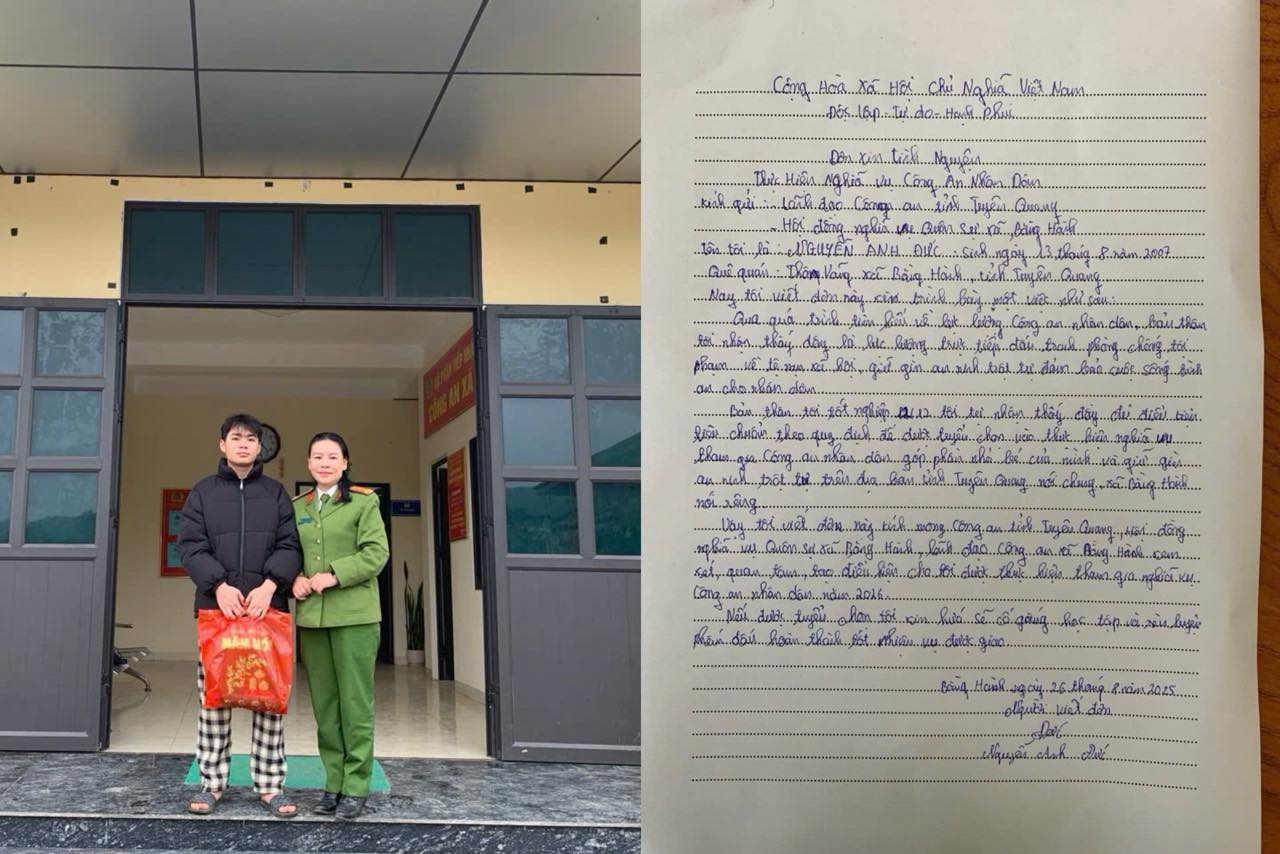 BỘ PHẬN TIẾP NHẬN
CÔNG AN XÃ
NĂM MỚI
Cộng Hoà Xã Hội Chủ Nghĩa Việt Nam
Độc lập - Tự do - Hạnh phúc
Đơn xin tình Nguyện
Thực Hiện Nghĩa vụ Công An Nhân Dân
kính gửi : - Lãnh đạo Công an tỉnh Tuyên Quang
- Hội đồng nghĩa vụ Quân sự xã Bằng Hành
Tên tôi là : NGUYỄN ANH ĐỨC . sinh ngày 13 tháng 8 năm 2007
Quê quán : Thôn Vàng xã Bằng Hành, tỉnh Tuyên Quang
Nay tôi viết đơn này xin trình bày một việc như sau:
Qua quá trình tìm hiểu về lực lượng Công an nhân dân, bản thân
tôi nhận thấy đây là lực lượng trực tiếp đấu tranh phòng chống tội
phạm về tệ nạn xã hội, giữ gìn an ninh trật tự đảm bảo cuộc sống bình
an cho nhân dân.
Bản thân tôi tốt nghiệp 12/12 tôi tự nhận thấy đầy đủ điều kiện
tiêu chuẩn theo quy định để được tuyển chọn vào thực hiện nghĩa vụ
tham gia Công an nhân dân góp phần nhỏ bé của mình và giữ gìn
an ninh trật tự trên địa bàn tỉnh Tuyên Quang nói chung, xã Bằng Hành
nói riêng.
Vậy tôi viết đơn này kính mong Công an tỉnh Tuyên Quang, Hội đồng
nghĩa vụ Quân sự xã Bằng Hành, lãnh đạo Công an xã Bằng Hành xem
xét, quan tâm, tạo điều kiện cho tôi được thực hiện tham gia nghĩa vụ
Công an nhân dân năm 2026.
Nếu được tuyển chọn tôi xin hứa sẽ cố gắng học tập và rèn luyện
phấn đấu hoàn thành tốt nhiệm vụ được giao
Bằng Hành ngày 26 tháng 8 năm 2025
Người viết đơn
Đức
Nguyễn Anh Đức